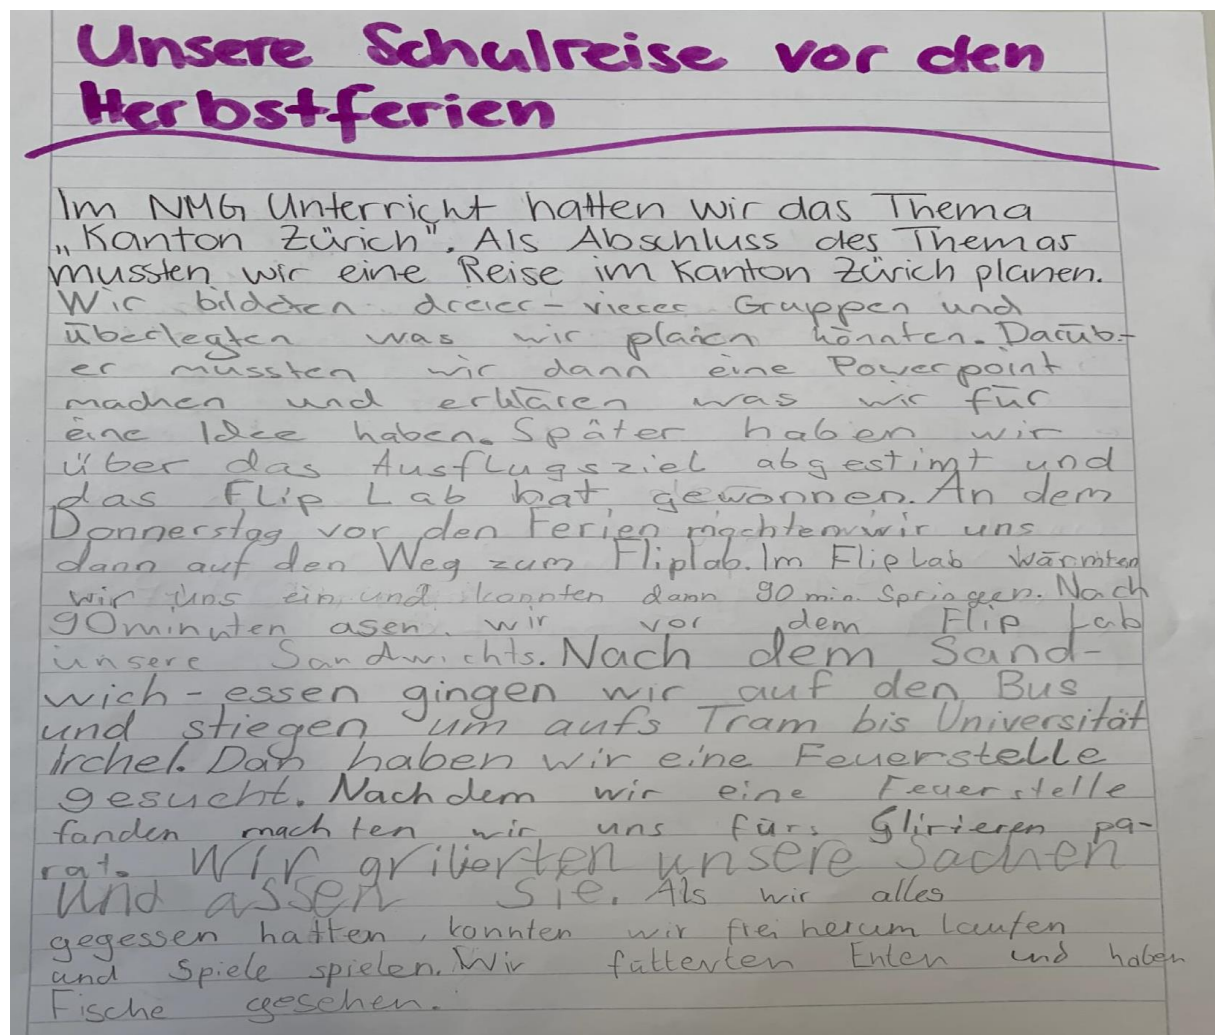 Unsere Schulreise vor den
Herbstferien
Im NMG Unterricht hatten wir das Thema
„Kanton Zürich". Als Abschluss des Themas
mussten wir eine Reise im Kanton Zürich planen.
Wir bildeten dreier-vierer Gruppen und
überlegten was wir planen könnten. Darüb-
er mussten wir dann eine Powerpoint
machen und erklären was wir für
eine Idee haben. Später haben wir
über das Ausflugsziel abgestimt und
das Flip Lab hat gewonnen. An dem
Donnerstag vor den Ferien machten wir uns
dann auf den Weg zum Fliplab. Im FlipLab wärmten
wir uns ein und konnten dann 90 min. Springen. Nach
90minuten asen wir vor dem Flip Lab
unsere Sandwichts. Nach dem Sand-
wich-essen gingen wir auf den Bus
und stiegen um aufs Tram bis Universität
Irchel. Dan haben wir eine Feuerstelle
gesucht. Nachdem wir eine Feuerstelle
fanden machten wir uns fürs Glirieren pa-
rat. Wir grilierten unsere Sachen
und assen sie. Als wir alles
gegessen hatten, konnten wir frei herum laufen
und Spiele spielen. Wir fütterten Enten und haben
Fische gesehen.